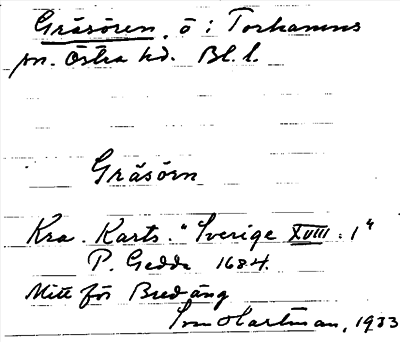 Gräsören, ö i Torhamns
sn. Östra hd. Bl. l.
Gräsörn
Kra. Karts. "Sverige XVIII : 1"
P. Gedda 1684.
Mitt för Bredäng
Hartman, 1933